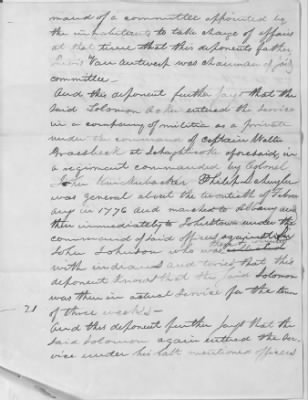 mand of a committee appointed by
the inhabitants to take charge of affairs
at that time that this deponents father
Lewis Van Antwerp was chairman of said
committee—
And this deponent further says that the
said Solomon Acker entered the service
in a company of militia as a private
under the command of captain Walter
Groesbeck at Schaghticoke aforesaid in
a regiment commanded by Colonel
John Knickerbacker Philip Schuyler
was general about the twentieth of Febru
ary in 1776 and marched to Albany and
then immediately to Johnstown under the
command of said officers against Sir
John Johnson who was there
with indians and tories that this
deponent knows that they said Solomon
was then in actual service for the term
21 of three weeks—
And this deponent further says that the
said Solomon again entered the Ser-
vice under his last mentioned officers